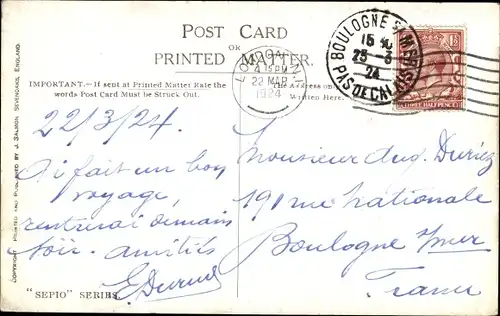 POST CARD
OR
PRINTED MATTER.
IMPORTANT.—If sent at Printed Matter Rate the
words Post Card Must be Struck Out.
The Address only
Written Here.
LONDON. N.1
4.15 PM
22 MAR
1924
BOULOGNE S/ MER
15
23 - 3
24
PAS DE CALAIS
THREE HALFPENCE
22/3/24.
ai fait un bon
voyage,
rentrerai demain
soir. amitiés
Monsieur Aug. Duriez
191 rue Nationale
Boulogne s/mer
France
"SEPIO" SERIES.
COPYRIGHT PRINTED AND PUBLISHED BY J. SALMON SEVENOAKS, ENGLAND.